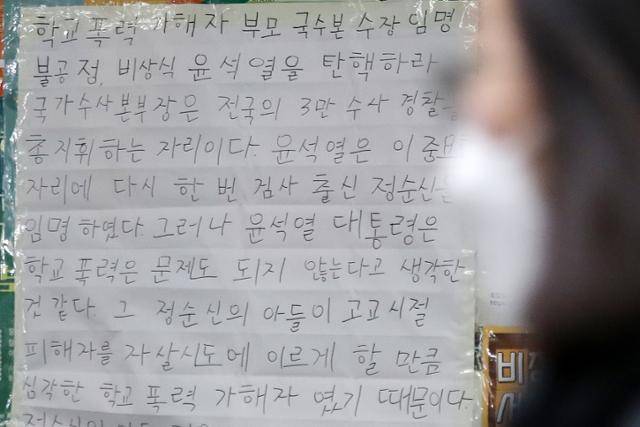 학교 폭력 가해자 부모 국수본 수장 임명
불공정, 비상식 윤석열을 탄핵하라
국가수사본부장은 전국의 3만 수사 경찰을
총지휘하는 자리이다. 윤석열은 이 중요
자리에 다시 한 번 검사 출신 정순신을
임명 하였다. 그러나 윤석열 대통령은
학교 폭력은 문제도 되지 않는다고 생각한
것 같다. 그 정순신의 아들이 고교시절
피해자를 자살시도에 이르게 할 만큼
심각한 학교 폭력 가해자 였기 때문이다.